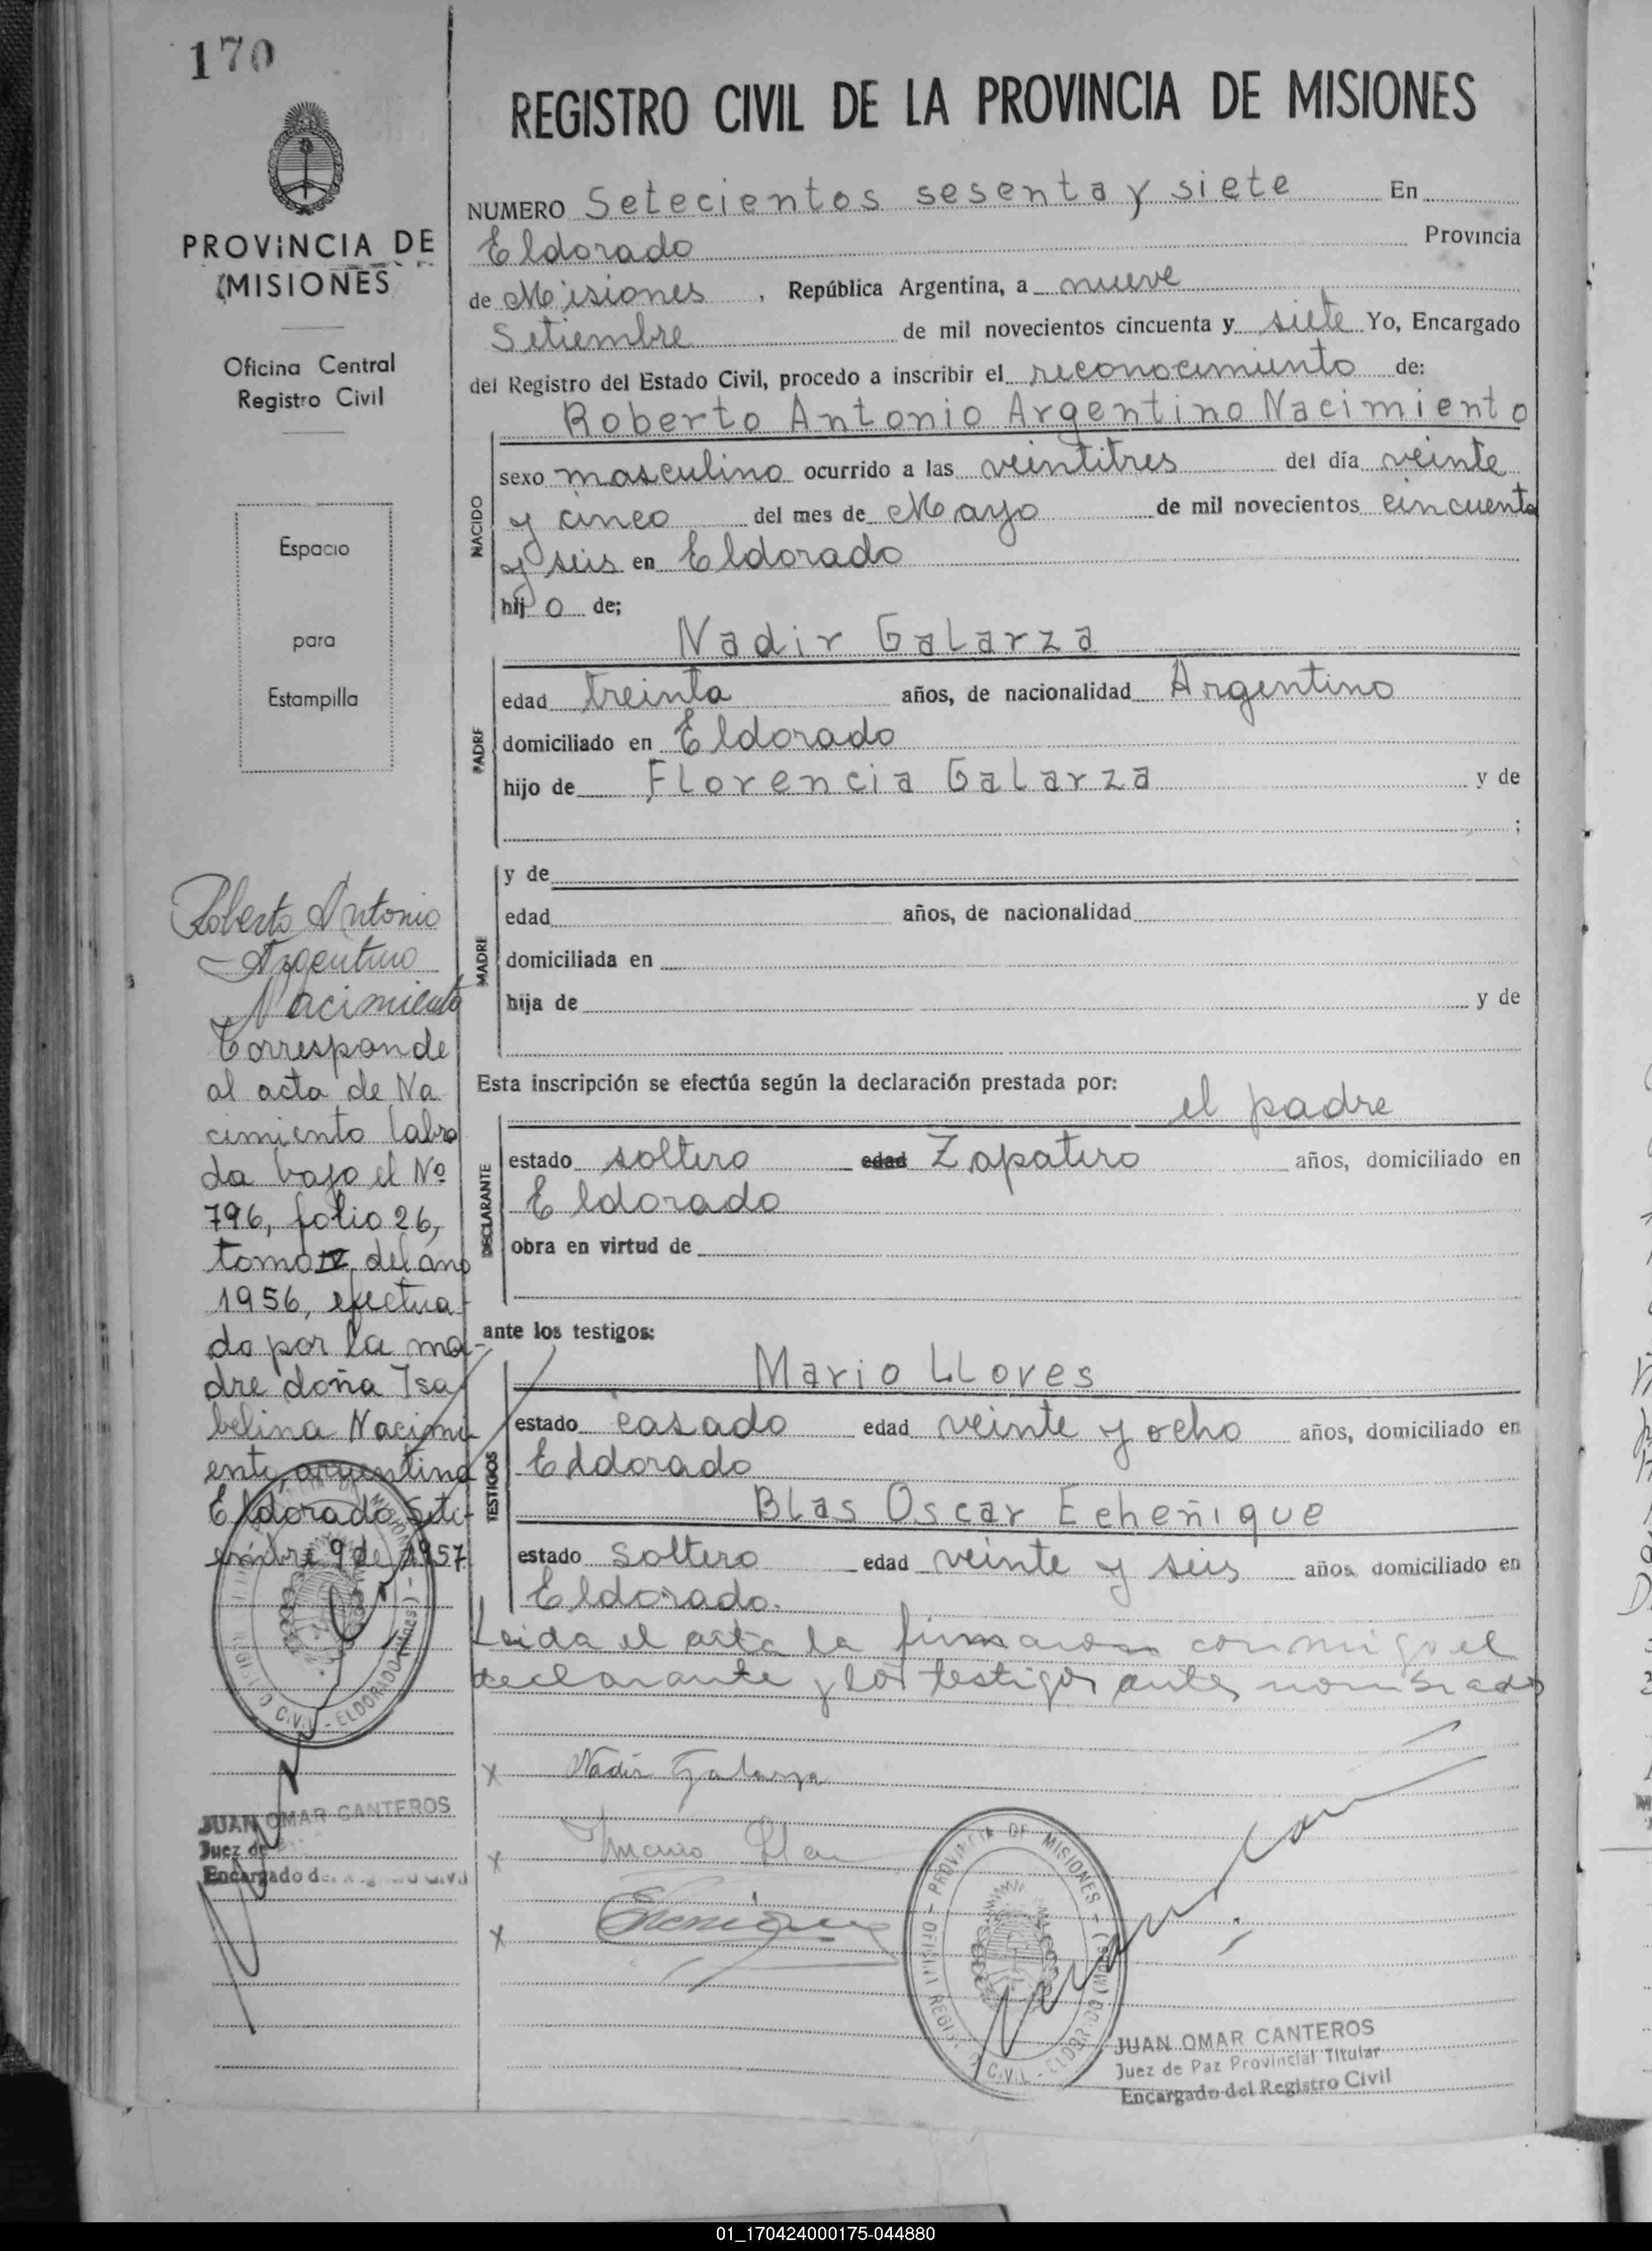 170
PROVINCIA DE
MISIONES
Oficina Central
Registro Civil
Espacio
para
Estampilla
Roberto Antonio
Argentino
Nacimiento
Corresponde
al acta de Na
cimiento labra
da bajo el Nº
796, folio 26,
tomo IV del año
1956, efectua
do por la ma-
dre doña Isa
belina Nacimi
ento, argentina
Eldorado Seti-
embre 9 de 1957
JUAN OMAR CANTEROS
Juez de
Encargado del Registro Civil
REGISTRO CIVIL DE LA PROVINCIA DE MISIONES
NUMERO Setecientos sesenta y siete En
Eldorado Provincia
de Misiones, República Argentina, a nueve
Setiembre de mil novecientos cincuenta y siete Yo, Encargado
del Registro del Estado Civil, procedo a inscribir el reconocimiento de:
NACIDO
Roberto Antonio Argentino Nacimiento
sexo masculino ocurrido a las veintitres del día veinte
y cinco del mes de Mayo de mil novecientos cincuenta
y seis en Eldorado
hijo de;
PADRE
Nadir Galarza
edad treinta años, de nacionalidad Argentino
domiciliado en Eldorado
hijo de Florencia Galarza y de
;
MADRE
y de
edad años, de nacionalidad
domiciliada en
hija de y de
Esta inscripción se efectúa según la declaración prestada por:
el padre
DECLARANTE
estado soltero edad Zapatero años, domiciliado en
Eldorado
obra en virtud de
ante los testigos:
TESTIGOS
Mario LLoves
estado casado edad veinte y ocho años, domiciliado en
Eldorado
Blas Oscar Echeñique
estado soltero edad veinte y seis años domiciliado en
Eldorado.
Leida el acta la firmaron conmigo el
declarante y los testigos antes nombrados
x Nadir Galarza
x Mario
x
PROVINCIA DE MISIONES
REGISTRO CIVIL - ELDORADO (Mnes)
JUAN OMAR CANTEROS
Juez de Paz Provincial Titular
Encargado del Registro Civil
01_170424000175-044880